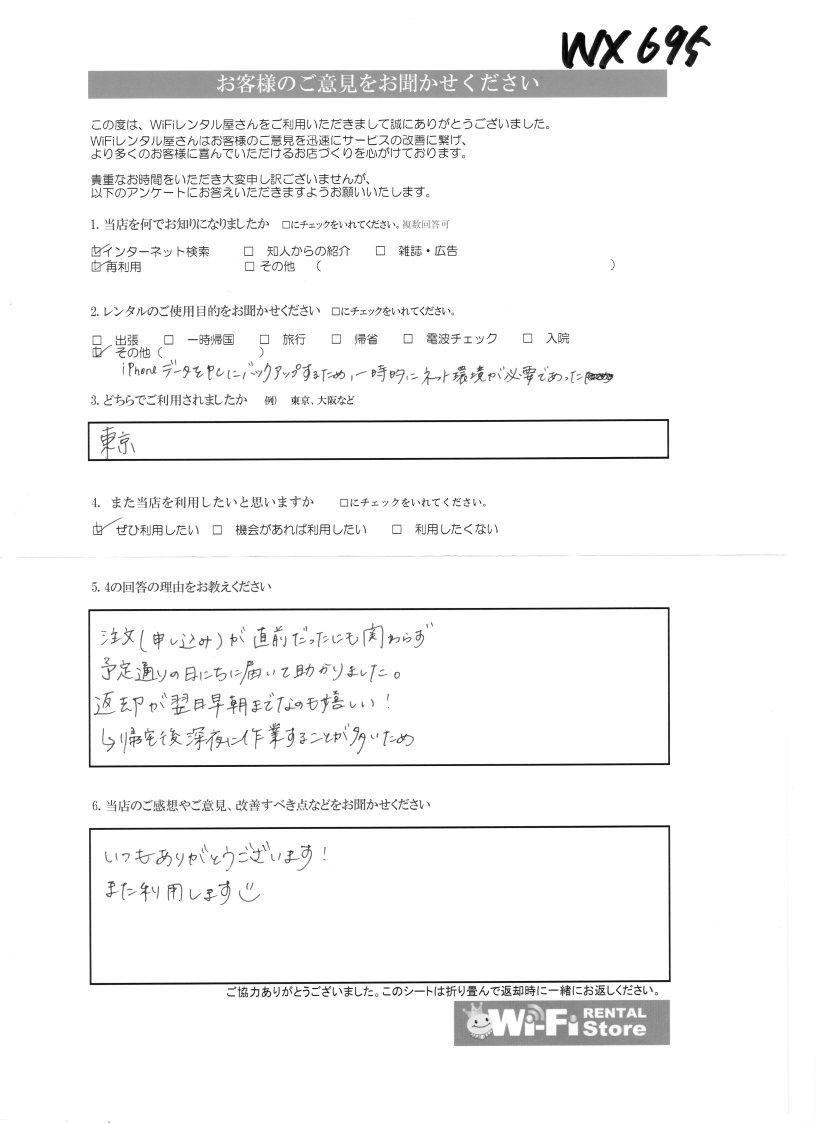 WX695
お客様のご意見をお聞かせください
この度は、WiFiレンタル屋さんをご利用いただきまして誠にありがとうございました。
WiFiレンタル屋さんはお客様のご意見を迅速にサービスの改善に繋げ、
より多くのお客様に喜んでいただけるお店づくりを心がけております。
貴重なお時間をいただき大変申し訳ございませんが、
以下のアンケートにお答えいただきますようお願いいたします。
1. 当店を何でお知りになりましたか □にチェックをいれてください。複数回答可
☑インターネット検索 □ 知人からの紹介 □ 雑誌・広告
☑再利用 □ その他 ( )
2. レンタルのご使用目的をお聞かせください □にチェックをいれてください。
□ 出張 □ 一時帰国 □ 旅行 □ 帰省 □ 電波チェック □ 入院
☑ その他 ( )
iPhoneデータをPCにバックアップするため、一時的にネット環境が必要であった
3. どちらでご利用されましたか 例) 東京、大阪など
東京
4. また当店を利用したいと思いますか □にチェックをいれてください。
☑ ぜひ利用したい □ 機会があれば利用したい □ 利用したくない
5. 4の回答の理由をお教えください
注文(申し込み)が直前だったにも関わらず
予定通りの日にちに届いて助かりました。
返却が翌日早朝までなのも嬉しい!
↳帰宅後深夜に作業することが多いため
6. 当店のご感想やご意見、改善すべき点などをお聞かせください
いつもありがとうございます!
また利用します
ご協力ありがとうございました。このシートは折り畳んで返却時に一緒にお返しください。
Wi-Fi RENTAL Store